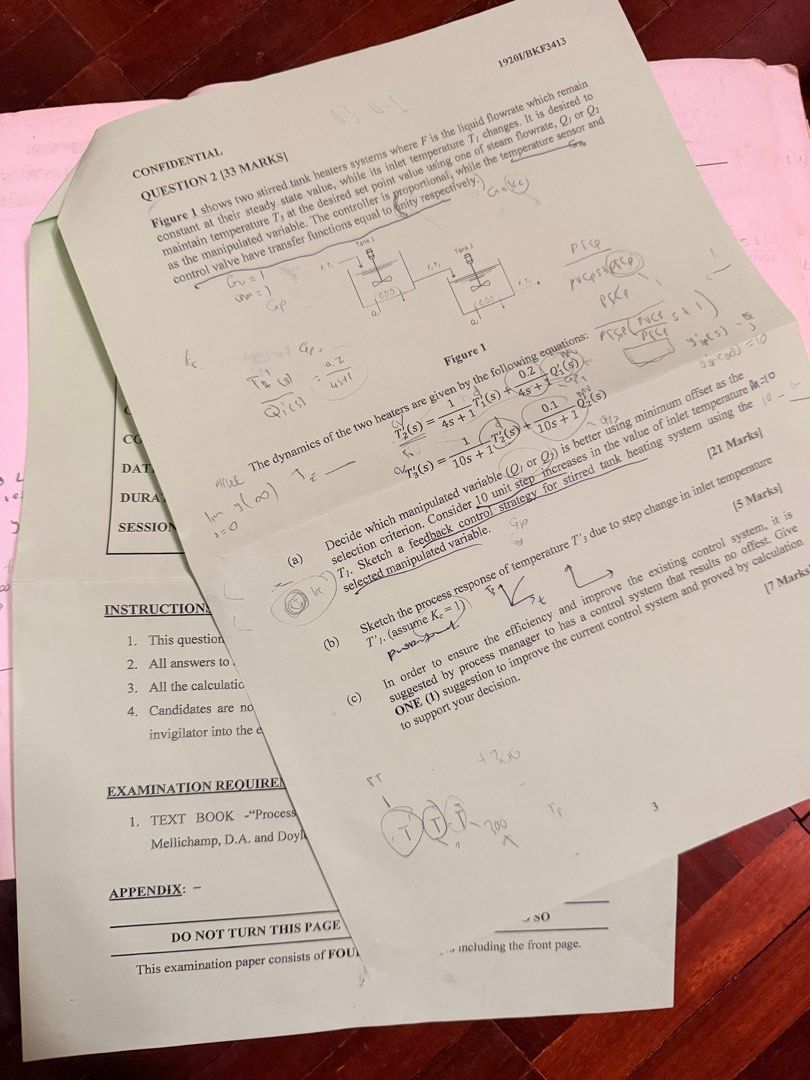 1920I/BKF3413
CONFIDENTIAL
QUESTION 2 [33 MARKS]
Figure 1 shows two stirred tank heaters systems where F is the liquid flowrate which remain
constant at their steady state value, while its inlet temperature T1 changes. It is desired to
maintain temperature T3 at the desired set point value using one of steam flowrate, Q1 or Q2
as the manipulated variable. The controller is proportional, while the temperature sensor and
control valve have transfer functions equal to unity respectively.
Gv = 1
Gm = 1
Gp
Tank 1
Tank 2
F,T1
F,T2
F,T3
Q1
Q2
Figure 1
Kc
The dynamics of the two heaters are given by the following equations:
T'2(s) = 1/(4s + 1) T'1(s) + 0.2/(4s + 1) Q'1(s)
T'3(s) = 1/(10s + 1) T'2(s) + 0.1/(10s + 1) Q'2(s)
(a) Decide which manipulated variable (Q1 or Q2) is better using minimum offset as the
selection criterion. Consider 10 unit step increases in the value of inlet temperature
T1. Sketch a feedback control strategy for stirred tank heating system using the
selected manipulated variable.
[21 Marks]
(b) Sketch the process response of temperature T'3 due to step change in inlet temperature
T'1. (assume Kc = 1)
[5 Marks]
(c) In order to ensure the efficiency and improve the existing control system, it is
suggested by process manager to has a control system that results no offest. Give
ONE (1) suggestion to improve the current control system and proved by calculation
to support your decision.
[7 Marks
+300
300
3
CO
DAT
DURA
SESSION
INSTRUCTION
1. This question
2. All answers to
3. All the calculatio
4. Candidates are no
invigilator into the e
EXAMINATION REQUIRE
1. TEXT BOOK -"Process
Mellichamp, D.A. and Doyl
APPENDIX: -
DO NOT TURN THIS PAGE
SO
This examination paper consists of FOU
including the front page.